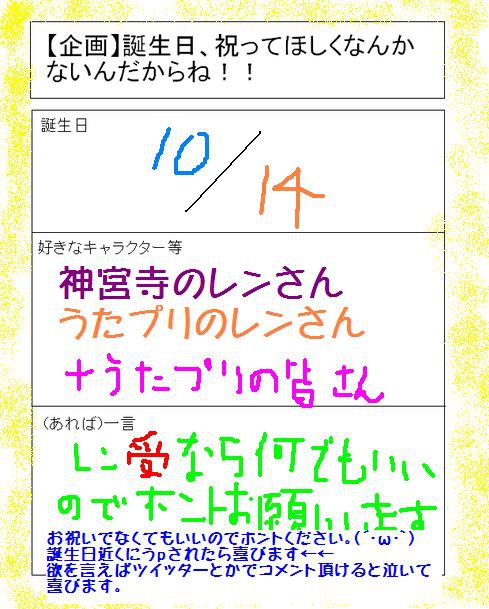 【企画】誕生日、祝ってほしくなんか
ないんだからね！！
誕生日
10/14
好きなキャラクター等
神宮寺のレンさん
うたプリのレンさん
+うたプリの皆さん
(あれば)一言
レン受なら何でもいい
のでホントお願いします
お祝いでなくてもいいのでホントください。(´･ω･`)
誕生日近くにうpされたら喜びます←←
欲を言えばツイッターとかでコメント頂けると泣いて
喜びます。